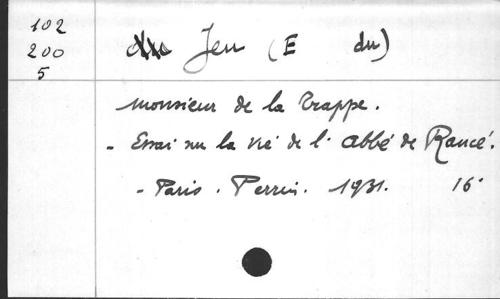 102
200
5
Jeu (E du)
Monsieur de la Trappe.
- Essai sur la vie de l'abbé de Rancé.
- Paris. Perrin. 1931. 16°